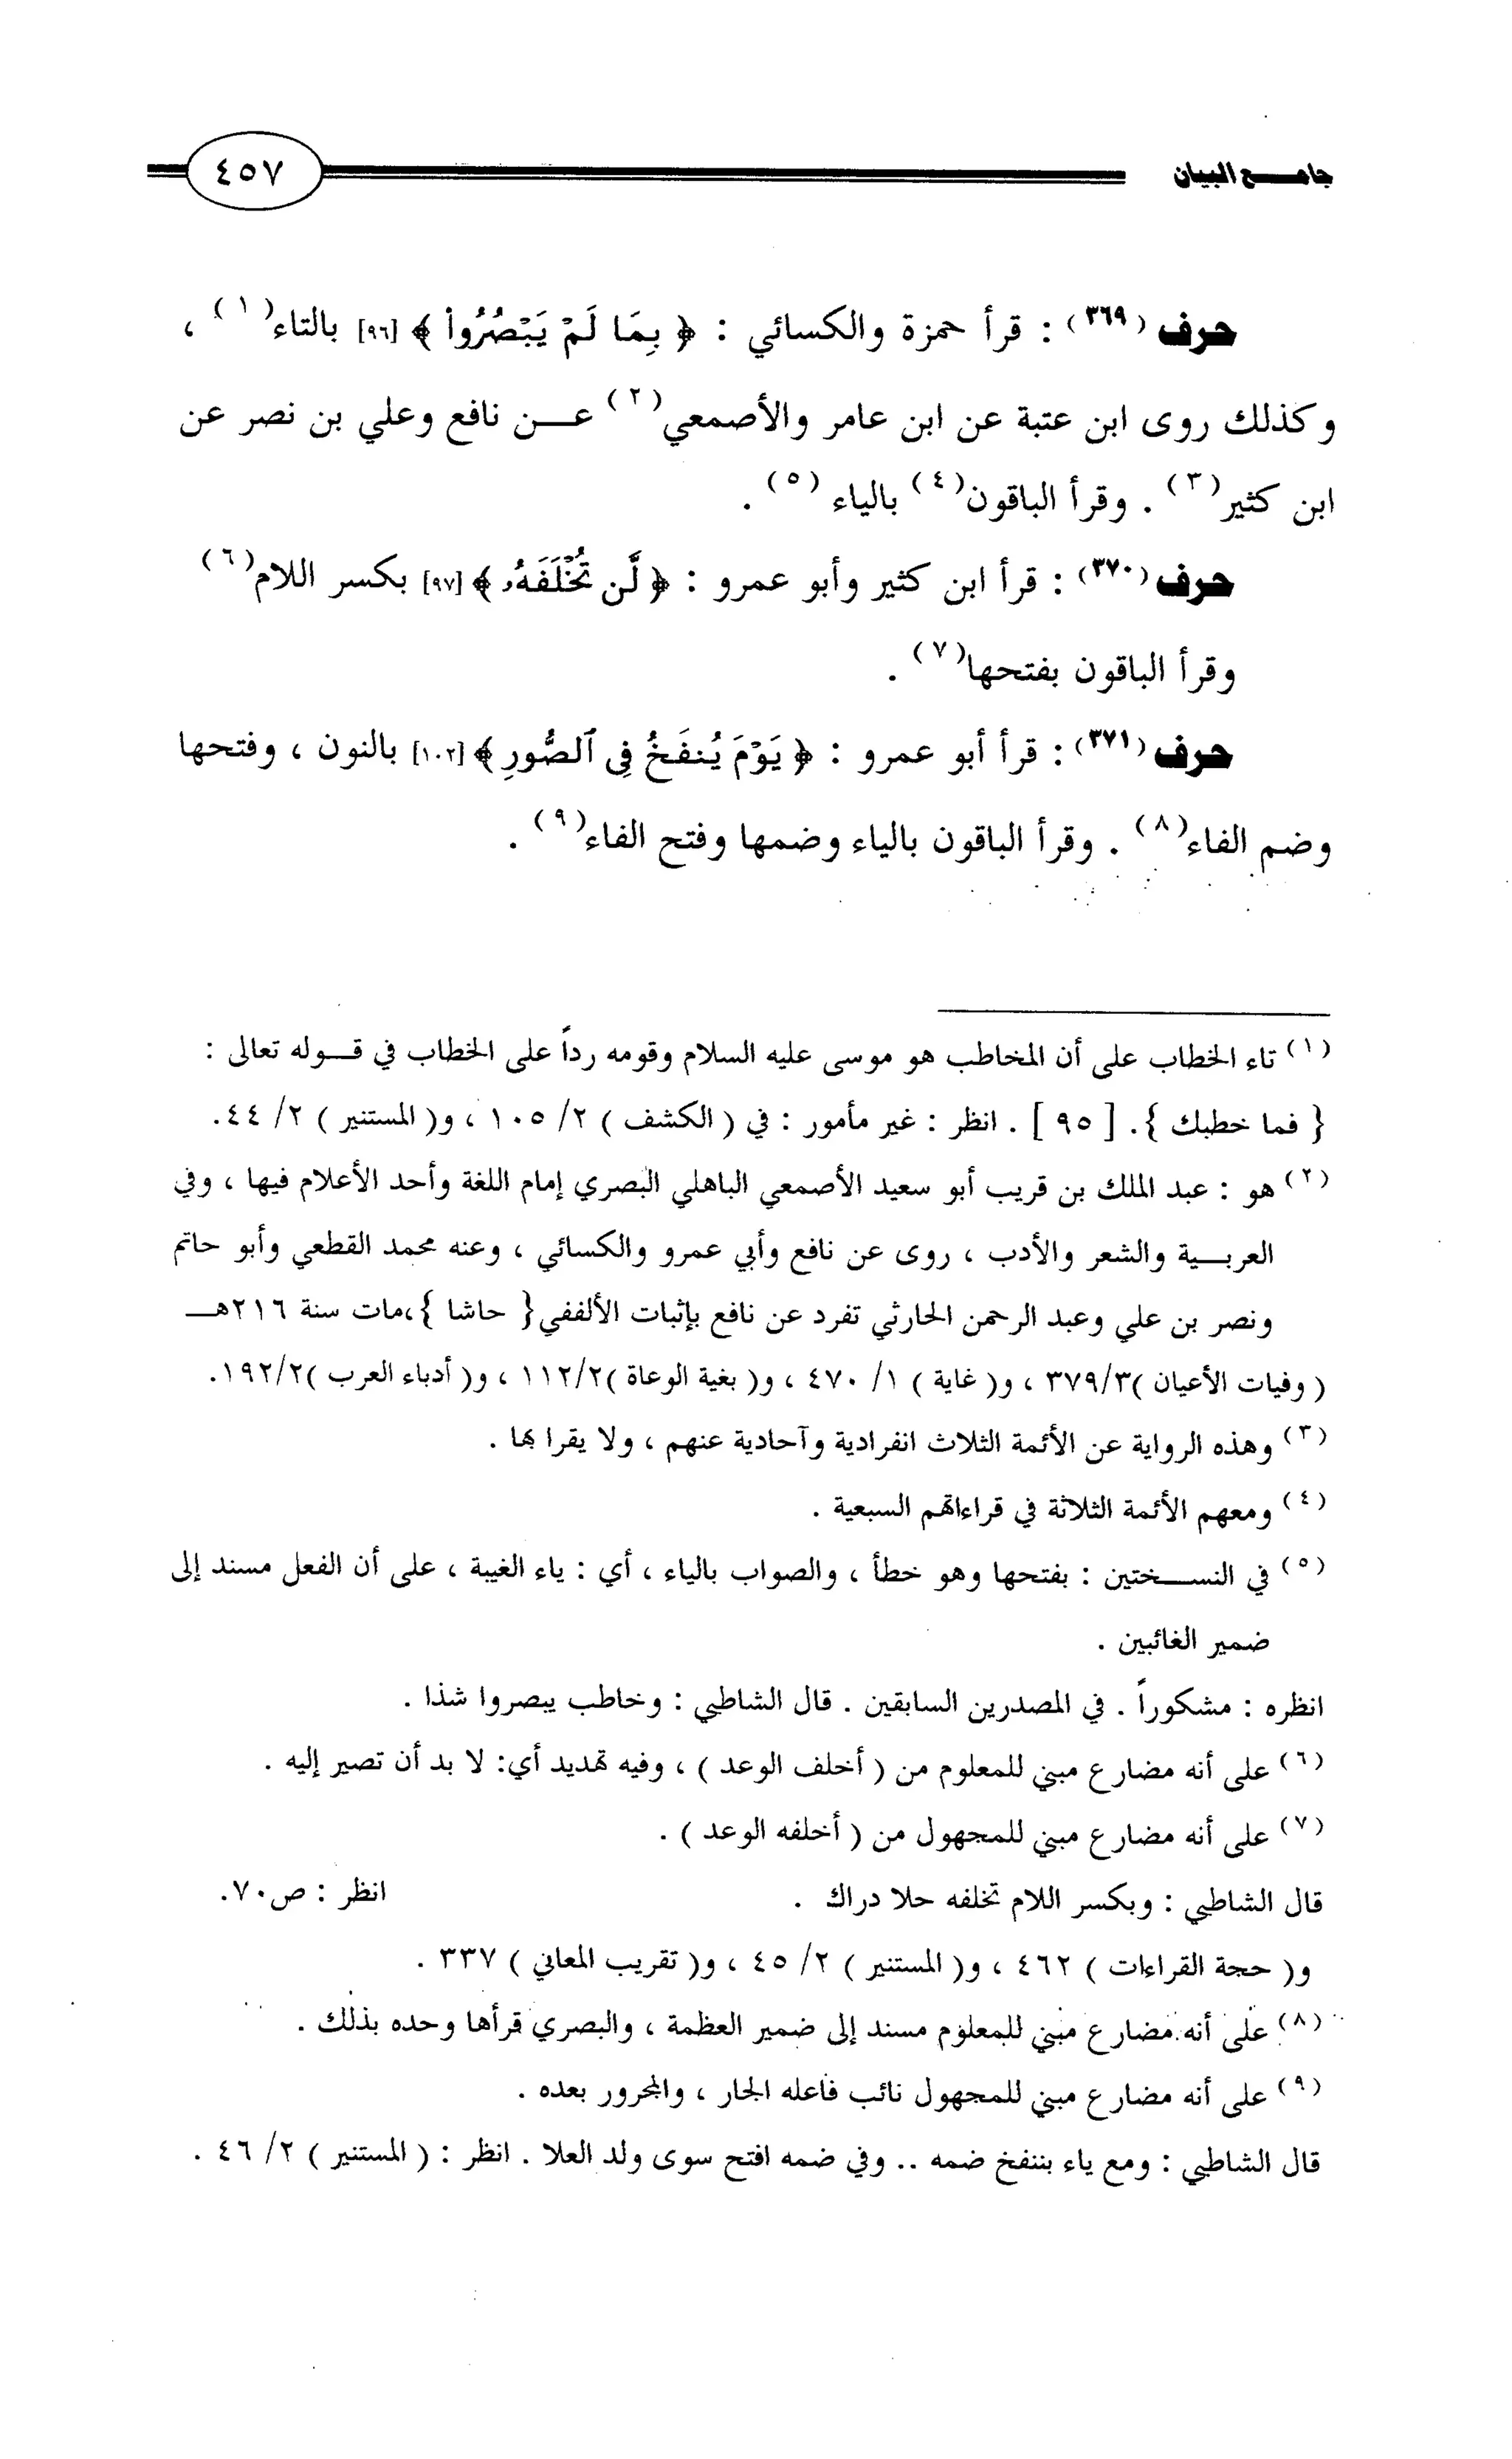 جامع البيان ٤٥٧
حرف (٣٦٩) : قرأ حمزة والكسائي : ﴿ بِمَا لَمْ يَبْصُرُوا ﴾ [٩٦] بالتاء(١) ،
وكذلك روى ابن عتبة عن ابن عامر والأصمعي(٢) عن نافع وعلي بن نصر عن
ابن كثير(٣) . وقرأ الباقون(٤) بالياء (٥) .
حرف (٣٧٠) : قرأ ابن كثير وأبو عمرو : ﴿ لَّن تُخْلَفَهُۥ ﴾ [٩٧] بكسر اللام(٦)
وقرأ الباقون بفتحها(٧) .
حرف (٣٧١) : قرأ أبو عمرو : ﴿ يَوْمَ يُنفَخُ فِى ٱلصُّورِ ﴾ [١٠٢] بالنون ، وفتحها
وضم الفاء(٨) . وقرأ الباقون بالياء وضمها وفتح الفاء(٩) .
(١) تاء الخطاب على أن المخاطب هو موسى عليه السلام وقومه رداً على الخطاب في قوله تعالى :
{ فما خطبك }. [ ٩٥ ] . انظر : غير مأمور : في ( الكشف ) ٢/ ١٠٥ ، و( المستنير ) ٢/ ٤٤.
(٢) هو : عبد الملك بن قريب أبو سعيد الأصمعي الباهلي البصري إمام اللغة وأحد الأعلام فيها ، وفي
العربية والشعر والأدب ، روى عن نافع وأبي عمرو والكسائي ، وعنه محمد القطعي وأبو حاتم
ونصر بن علي وعبد الرحمن الحارثي تفرد عن نافع بإثبات الألففي{ حاشا }،مات سنة ٢١٦هـ
( وفيات الأعيان )٣٧٩/٣ ، و( غاية ) ١/ ٤٧٠ ، و( بغية الوعاة )١١٢/٢ ، و( أدباء العرب )١٩٢/٢.
(٣) وهذه الرواية عن الأئمة الثلاث انفرادية وآحادية عنهم ، ولا يقرا بها .
(٤) ومعهم الأئمة الثلاثة في قراءاتهم السبعية .
(٥) في النسختين : بفتحها وهو خطأ ، والصواب بالياء ، أي : ياء الغيبة ، على أن الفعل مسند إلى
ضمير الغائبين .
انظره : مشكوراً . في المصدرين السابقين . قال الشاطبي : وخاطب يبصروا شذا .
(٦) على أنه مضارع مبني للمعلوم من ( أخلف الوعد ) ، وفيه تهديد أي: لا بد أن تصير إليه .
(٧) على أنه مضارع مبني للمجهول من ( أخلفه الوعد ) .
قال الشاطبي : وبكسر اللام تخلفه حلا دراك . انظر : ص٧٠.
و( حجة القراءات ) ٤٦٢ ، و( المستنير ) ٢/ ٤٥ ، و( تقريب المعاني ) ٣٣٧ .
(٨) على أنه مضارع مبني للمعلوم مسند إلى ضمير العظمة ، والبصري قرأها وحده بذلك .
(٩) على أنه مضارع مبني للمجهول نائب فاعله الجار ، والمجرور بعده .
قال الشاطبي : ومع ياء بننفخ ضمه .. وفي ضمه افتح سوى ولد العلا . انظر : ( المستنير ) ٢/ ٤٦ .